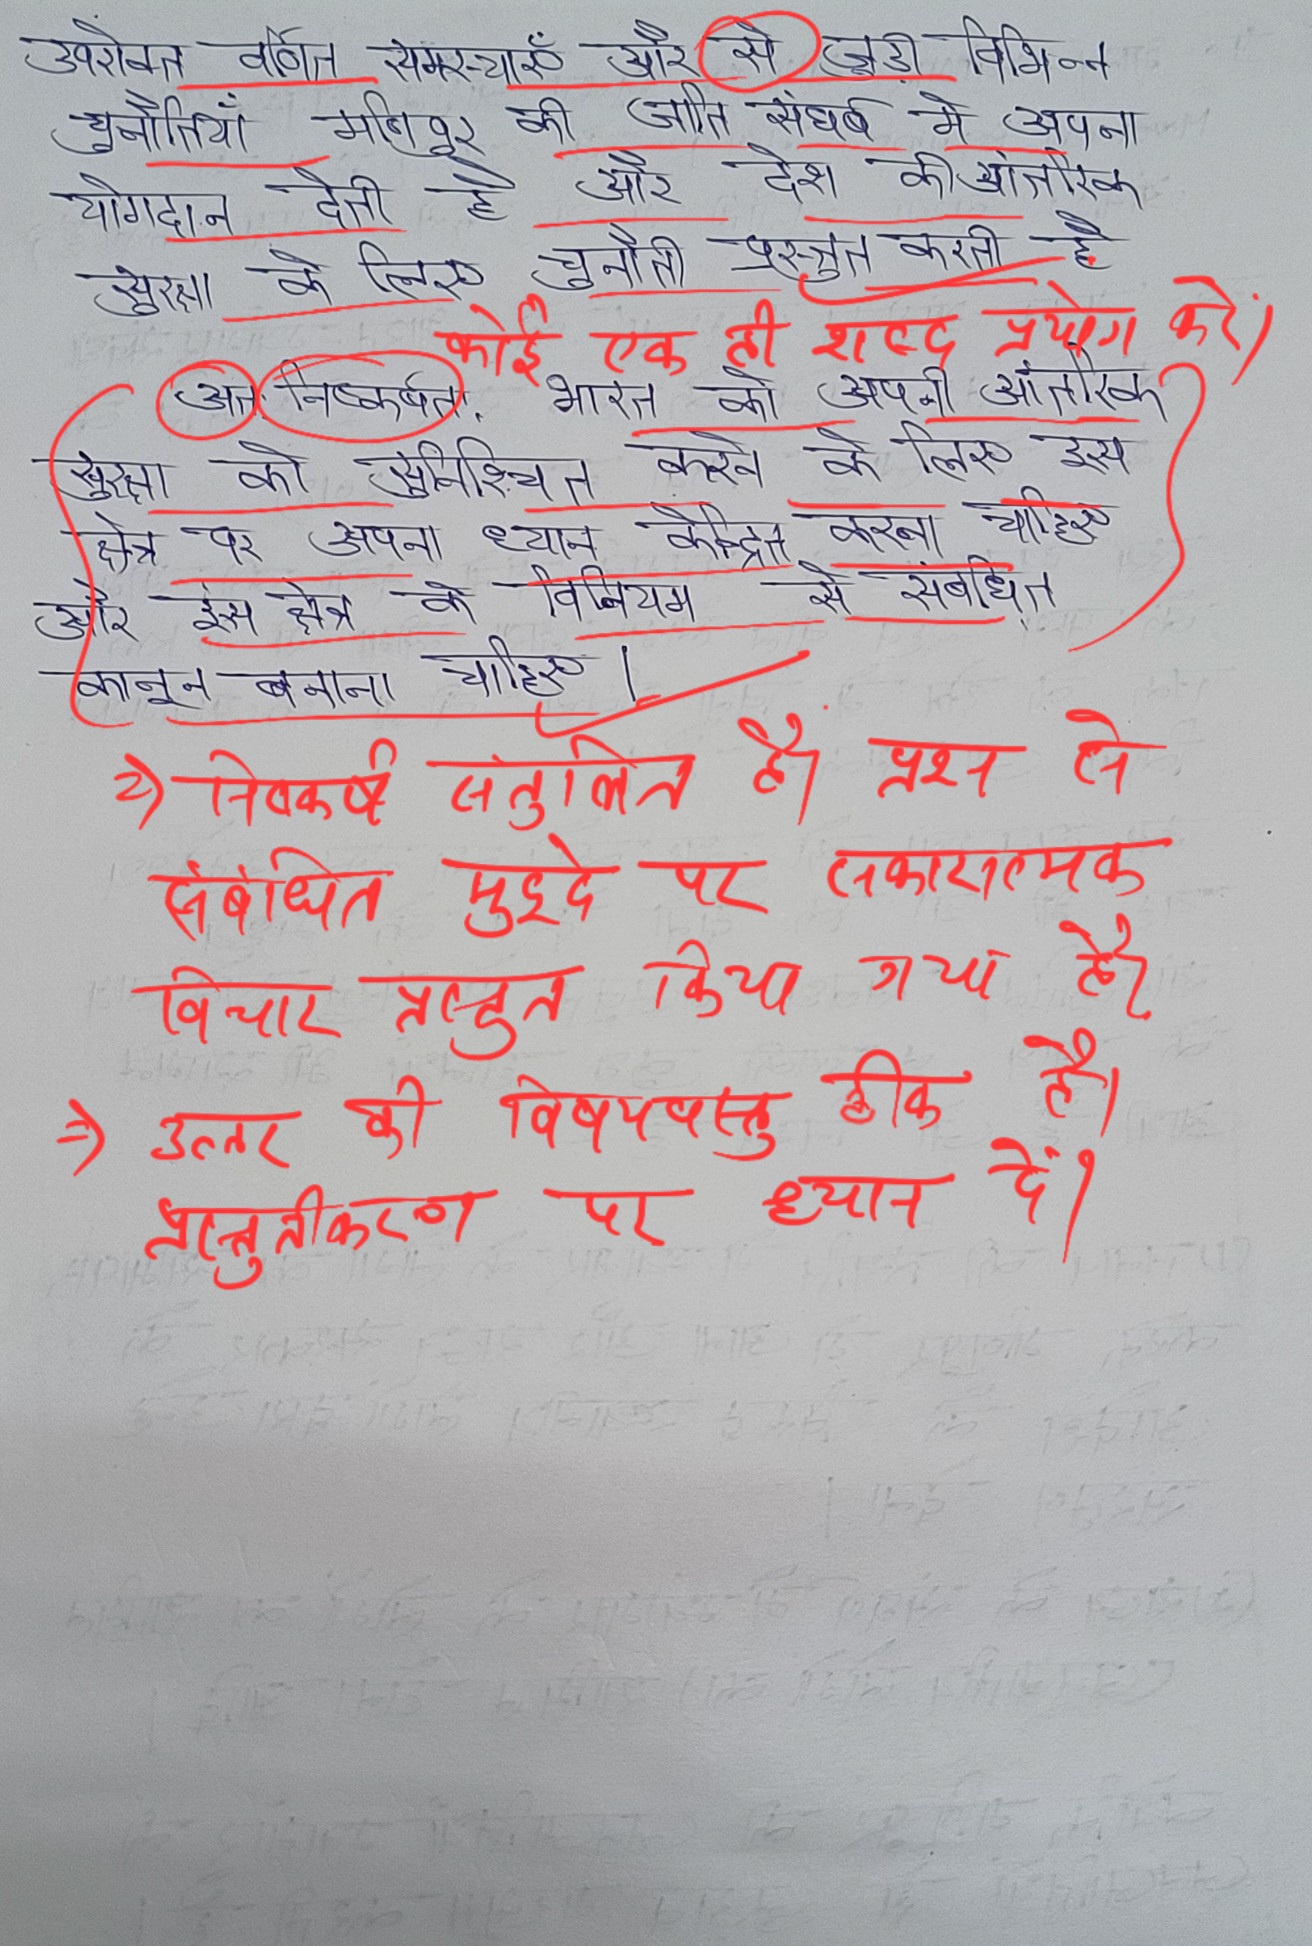 उपरोक्त वर्णित समस्याएँ और से जूड़ी विभिन्न
चुनौतियाँ मणिपूर की जाति संघर्ष मे अपना
योगदान देती है और देश की आंतरिक
सुरक्षा के लिए चुनौती प्रस्तुत करती है
कोई एक ही शब्द प्रयोग करें।
अतः निष्कर्षतः भारत को अपनी आंतरिक
सुरक्षा को सुनिश्चित करने के लिए इस
क्षेत्र पर अपना ध्यान केन्द्रित करना चाहिए
और इस क्षेत्र के विनियम से संबंधित
कानून बनाना चाहिए।
⇒ निष्कर्ष संतुलित है। प्रश्न से
संबंधित मुद्दे पर सकारात्मक
विचार प्रस्तुत किया गया है।
⇒ उत्तर की विषयवस्तु ठीक है।
प्रस्तुतीकरण पर ध्यान दें।